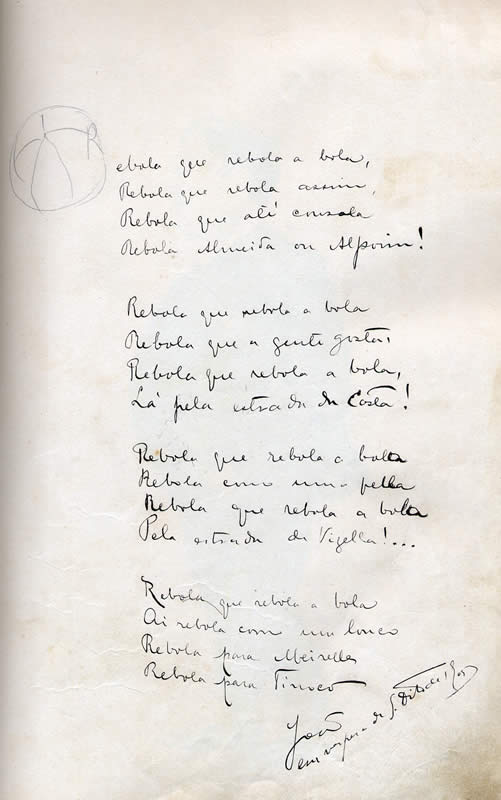 Rebola que rebola a bola,
Rebola que rebola assim,
Rebola que até consola
Rebola Almeida ou Alpoim!
Rebola que rebola a bola
Rebola que a gente gosta,
Rebola que rebola a bola,
Lá pela estrada da Costa!
Rebola que rebola a bola
Rebola como uma pella
Rebola que rebola a bola
Pela estrada de Vizella!...
Rebola que rebola a bola
Ai rebola com um louco
Rebola para Meirelles
Rebola para Tinoco
João
em vespera de S.